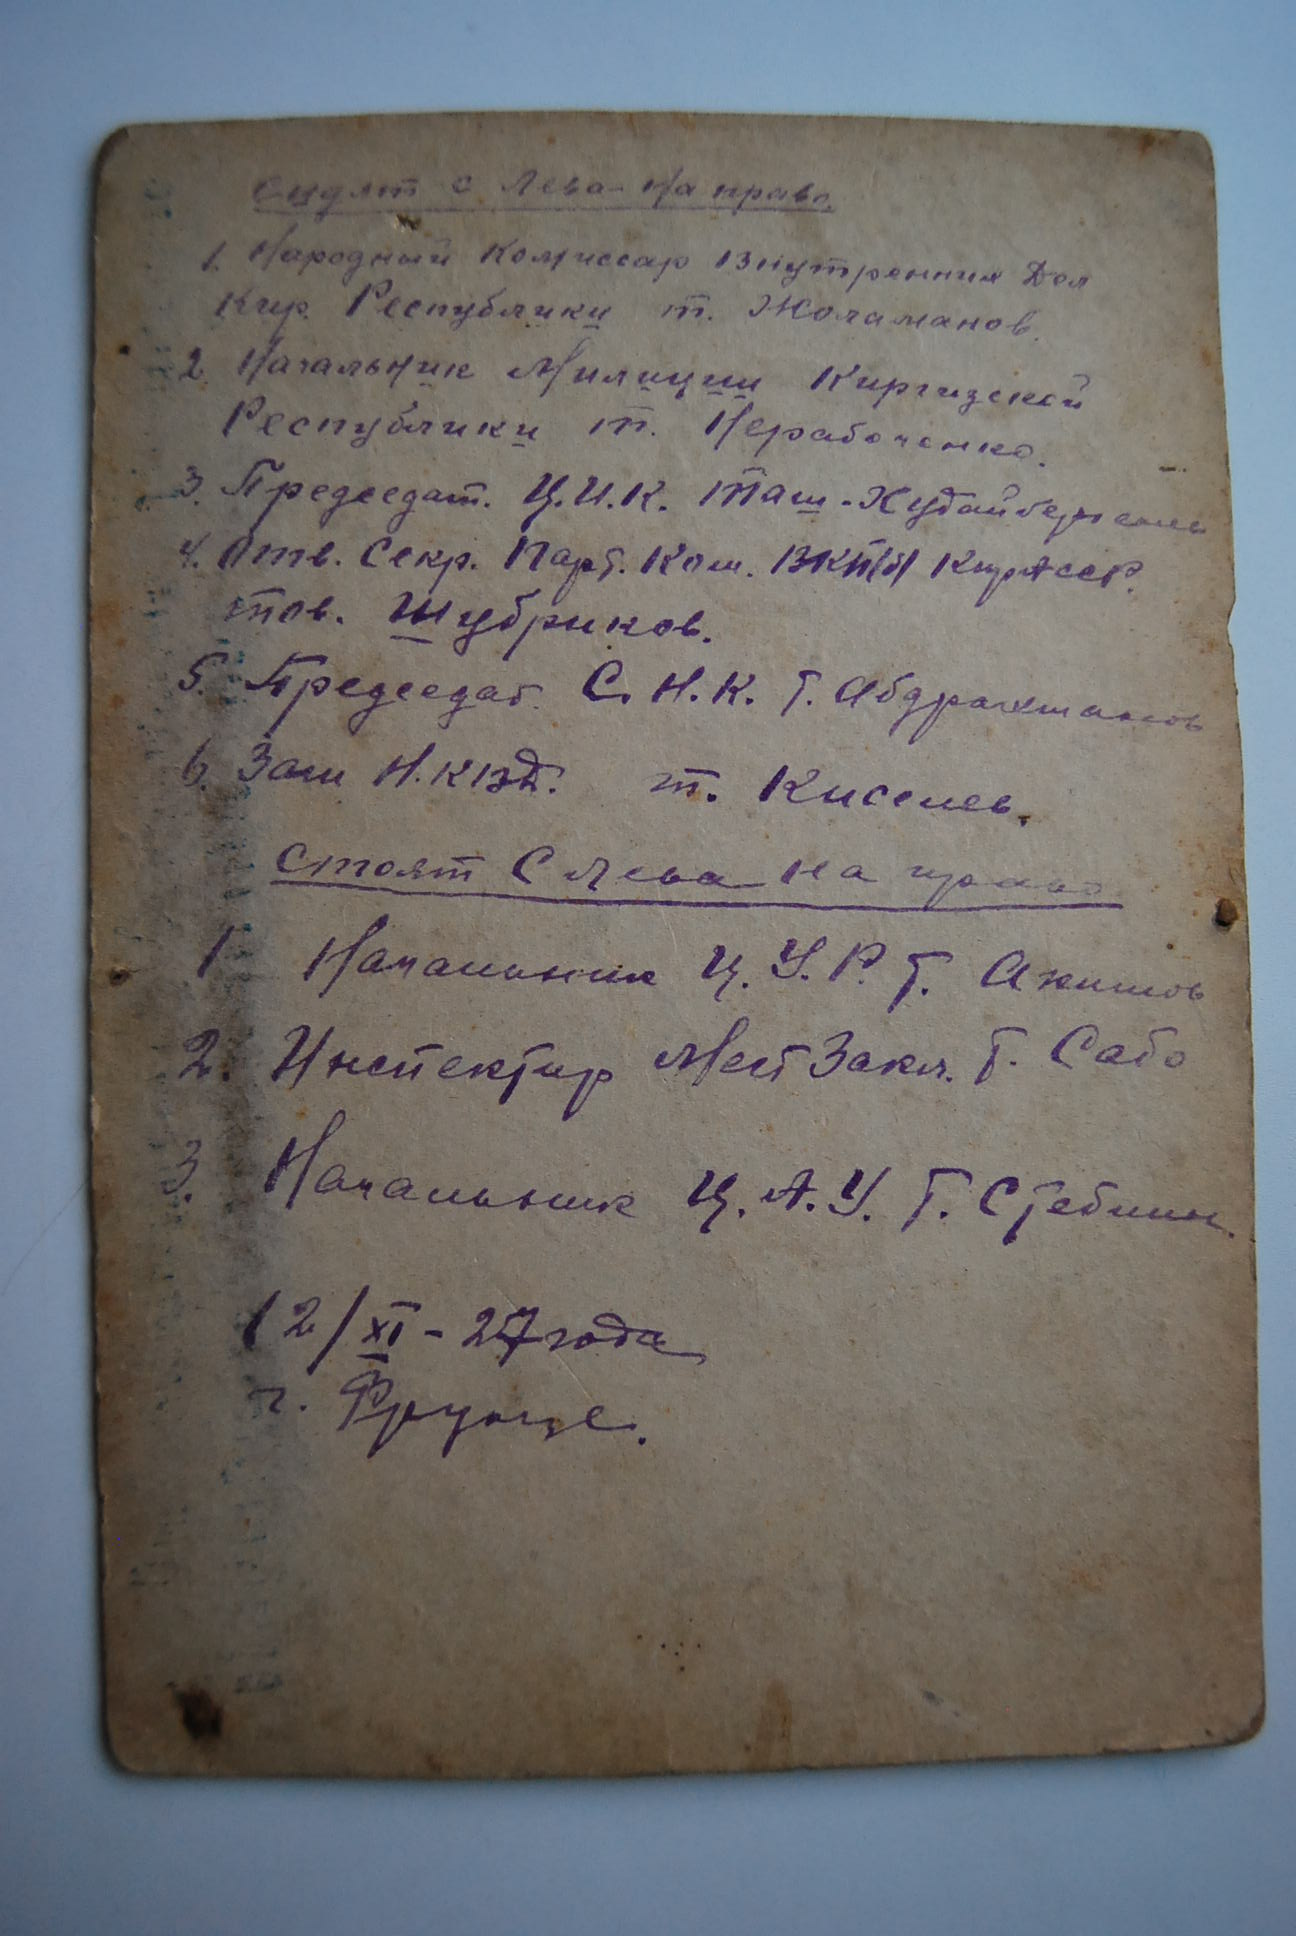 Сидят с Лева-На право.
1. Народный Комиссар Внутренних Дел
Кир. Республики т. Жоламанов.
2 Начальник Милиции Киргизской
Республики т. Нерабоченко.
3. Председат. Ц.И.К. Таш-Худайбергенев
4. Отв. Секр. Парт. Ком. ВКП(б) КирАССР.
тов. Шубриков.
5. Председат. С.Н.К. т. Абдрахманов
6. Зам Н.КВД. т. Киселев.
Стоят С Лева на право
1 Начальник Ц.У.Р. т. Акимов
2. Инспектир Мест Закл. т. Сабо
3. Начальник Ц.А.У. т. Стеблин.
12/XI-27 года
г. Фрунзе.